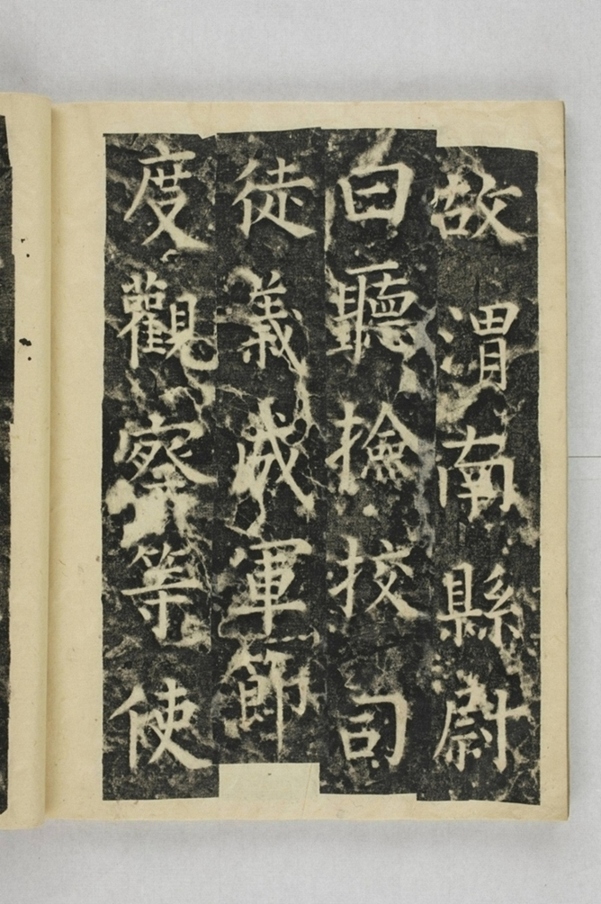 故渭南縣尉
曰聽撿挍司
徒義成軍節
度觀察等使